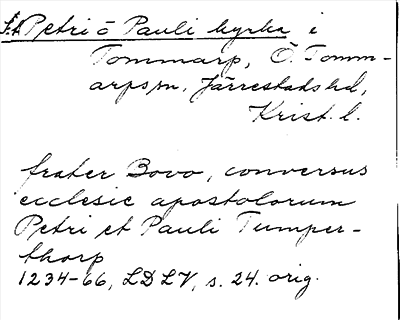 S:t Petri o Pauli kyrka i
Tommarp, Ö. Tomm-
arps sn. Järrestads hd,
Krist. l.
frater Bovo, conversus
ecclesie apostolorum
Petri et Pauli Tumper-
thorp
1234-66, LDLV, s. 24. orig.